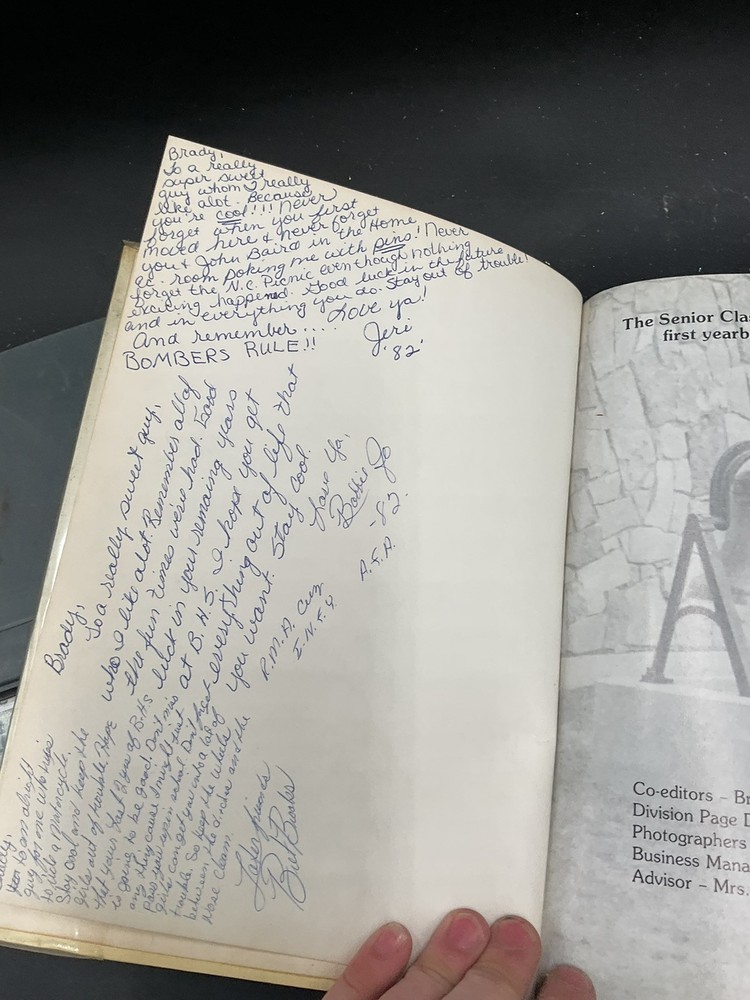 Brady,
To a really
super sweet
guy whom I really
like alot. Because
you're cool!!! Never
forget when you first
moved here & never forget
you & John Baird in the Home
ec. room poking me with pins! Never
forget the N.C. Picnic even though nothing
exciting happened. Good luck in the future
and in everything you do. Stay out of trouble!
And remember.... Love ya!
BOMBERS RULE!! Jeri
'82'
Brady,
To a really sweet guy,
who I like alot. Remember all of
the fun times were had. Good
luck in your remaining years
at B.H.S. I hope you get
everything out of life that
you want. Stay cool.
Love Ya,
Bobbie Jo
-82-
R.M.A. Cuz A.F.A.
I.N.F.Y.
to an alright
guy for one who
to ride a motorcycle.
Stay cool and keep the
girls out of trouble. Hope
that your last 2 years of B.H.S
is going to be good. Don't miss
any they cause I might just
Pass you up in school. Don't
girls can get you into a lot of
trouble. So keep the wheels
between the ditches and the
Nose clean.
Later
The Senior Clas
first yearb
Co-editors – Br
Division Page D
Photographers
Business Mana
Advisor – Mrs.